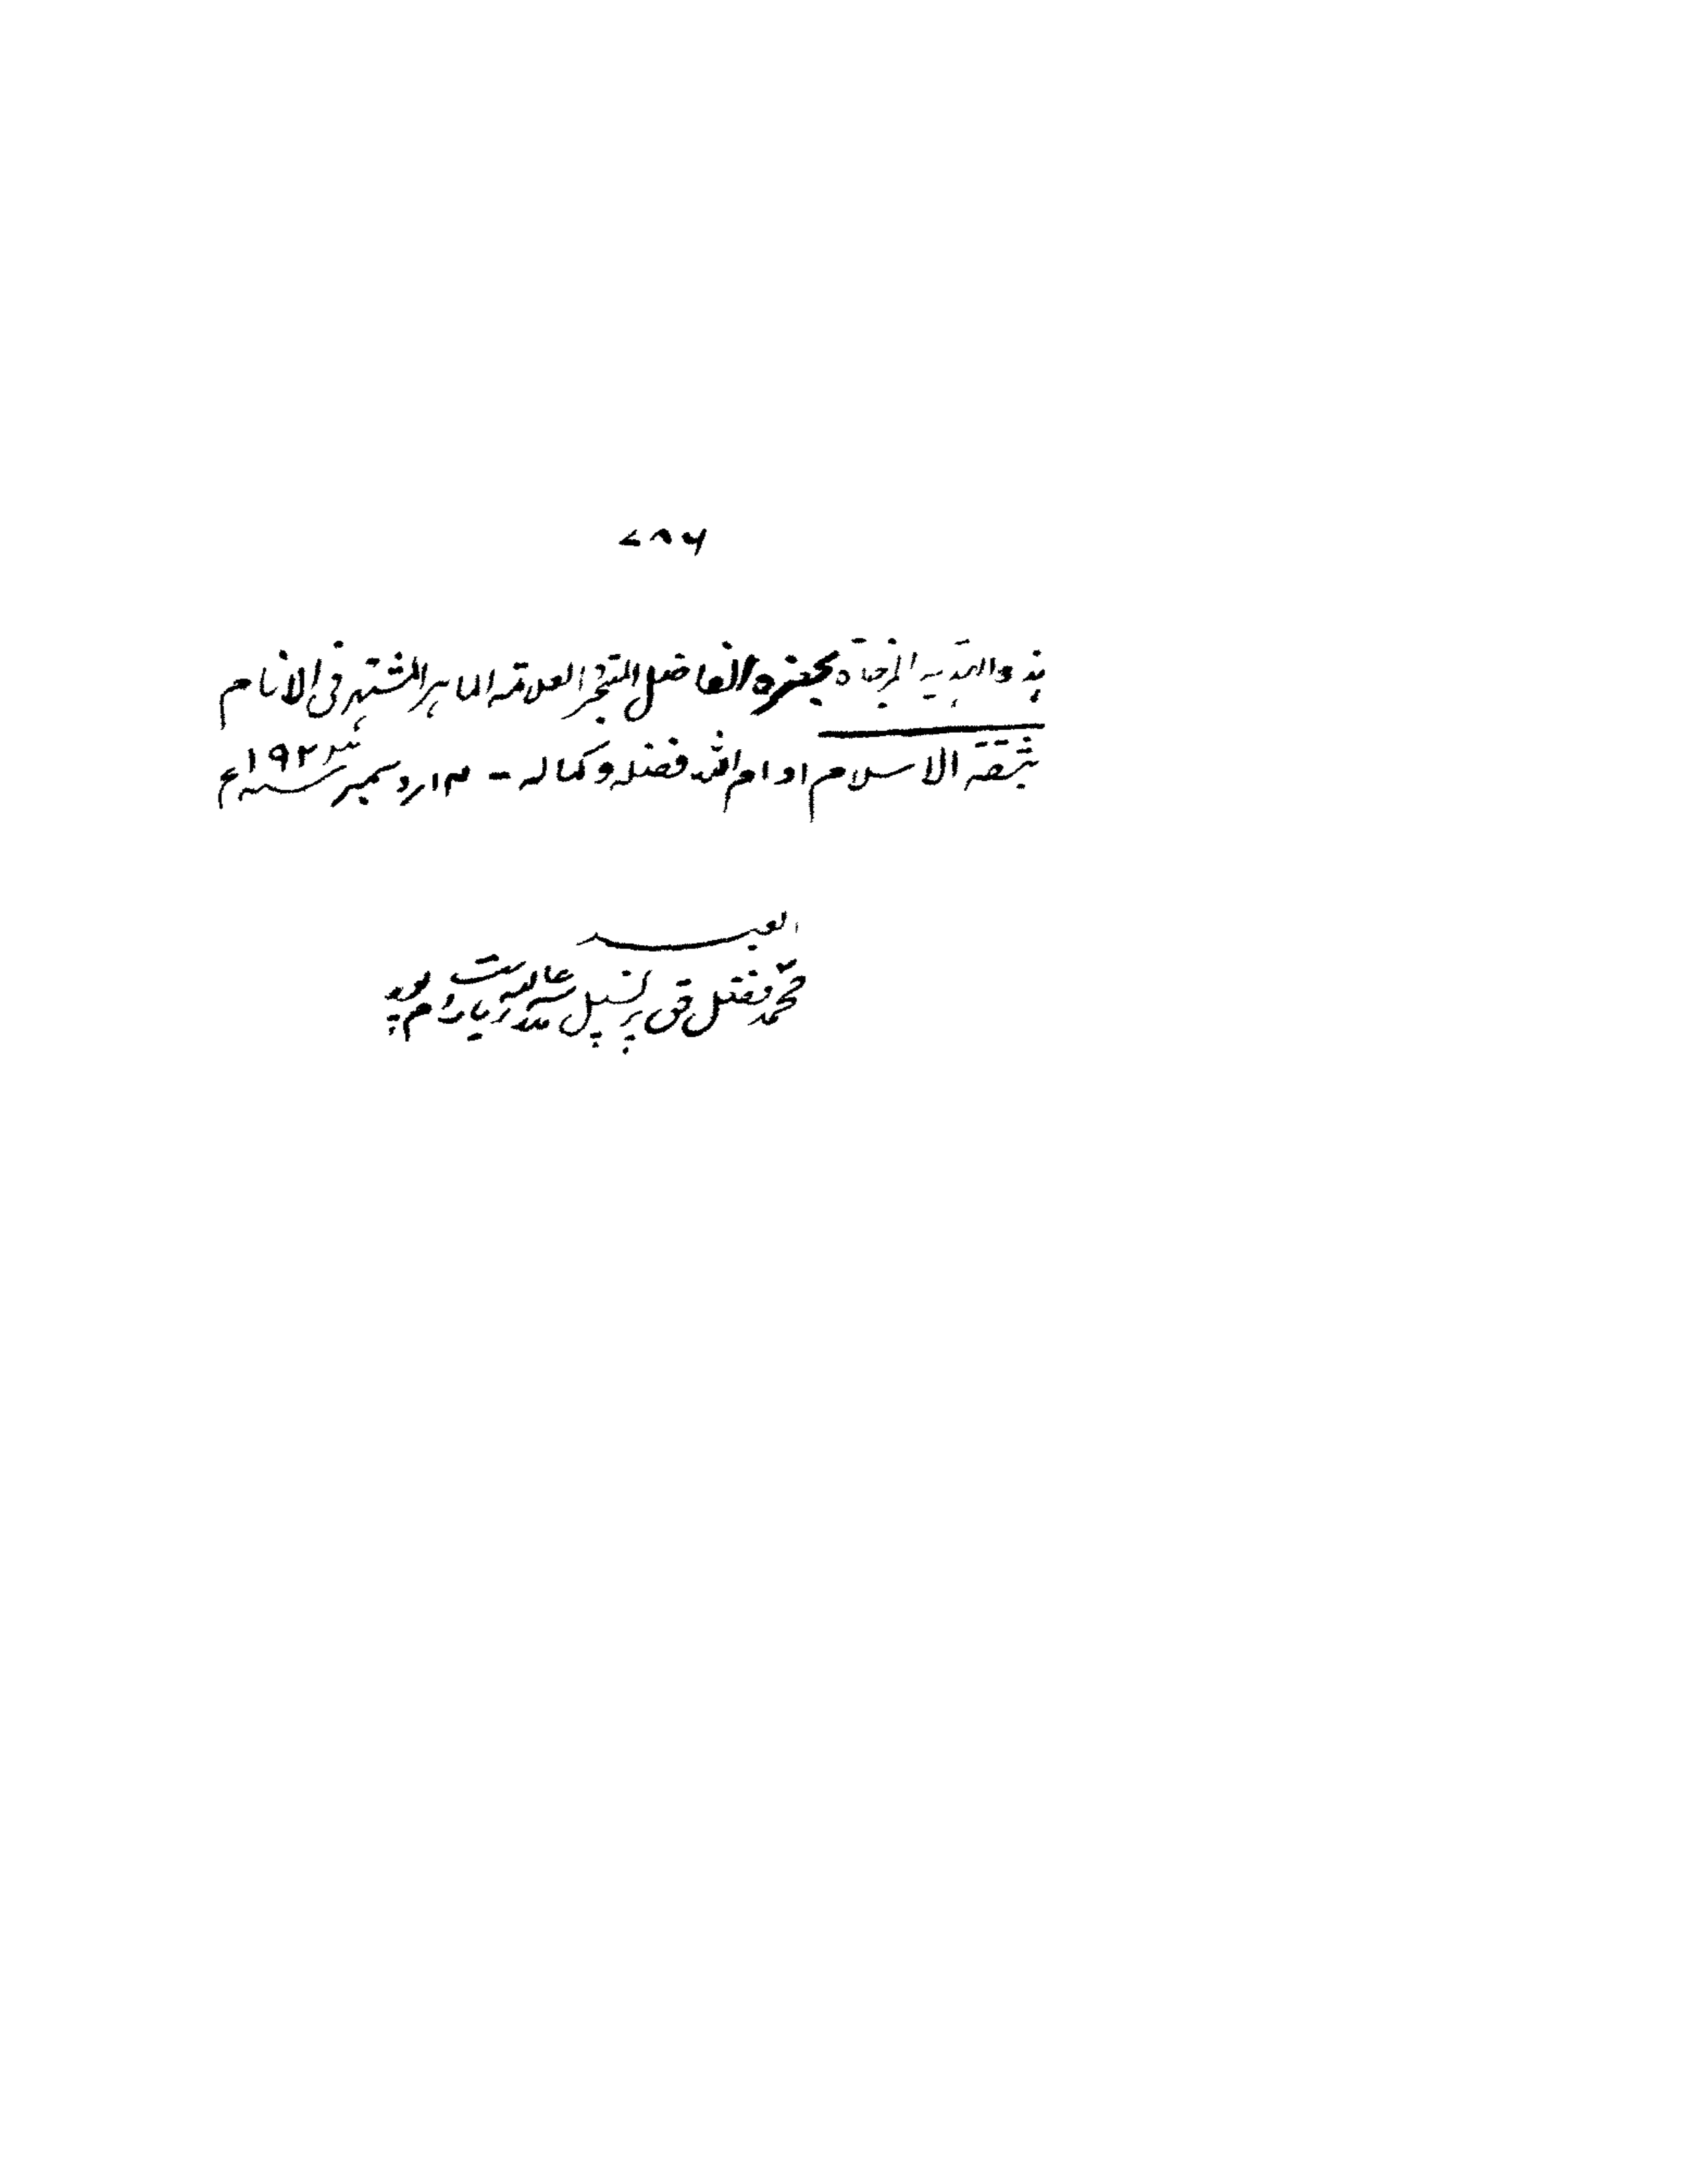 ۷۸۶
ہذہ الہدیہ المزجاۃ بحضرۃ الفاضل المتبحر العلامۃ الماہر المشتہر فی الانام
بثقۃ الاسلام ادام اللہ فضلہ وکمالہ - ۱۳؍ دسمبر سنہ ء
العبد
محمد فضل حق پرنسپل مدرسہ عالیہ ریاست رام پور